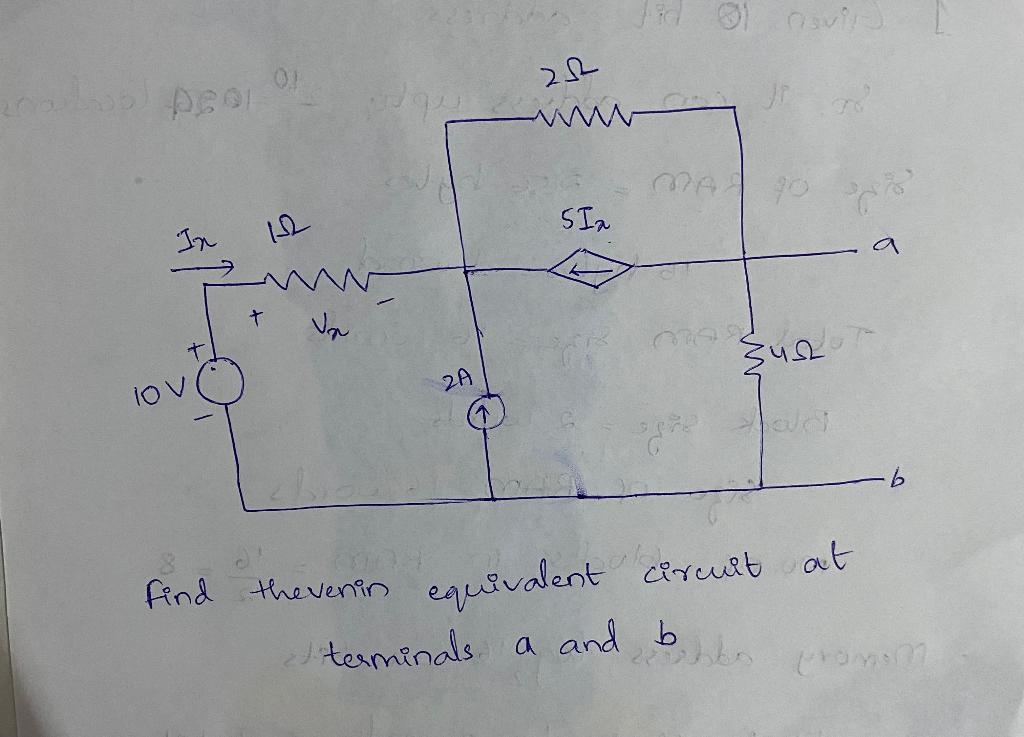 2Ω
Ix
1Ω
5Ix
a
+ Vx -
+
10V
-
2A
4Ω
b
find thevenin equivalent circuit at
terminals a and b